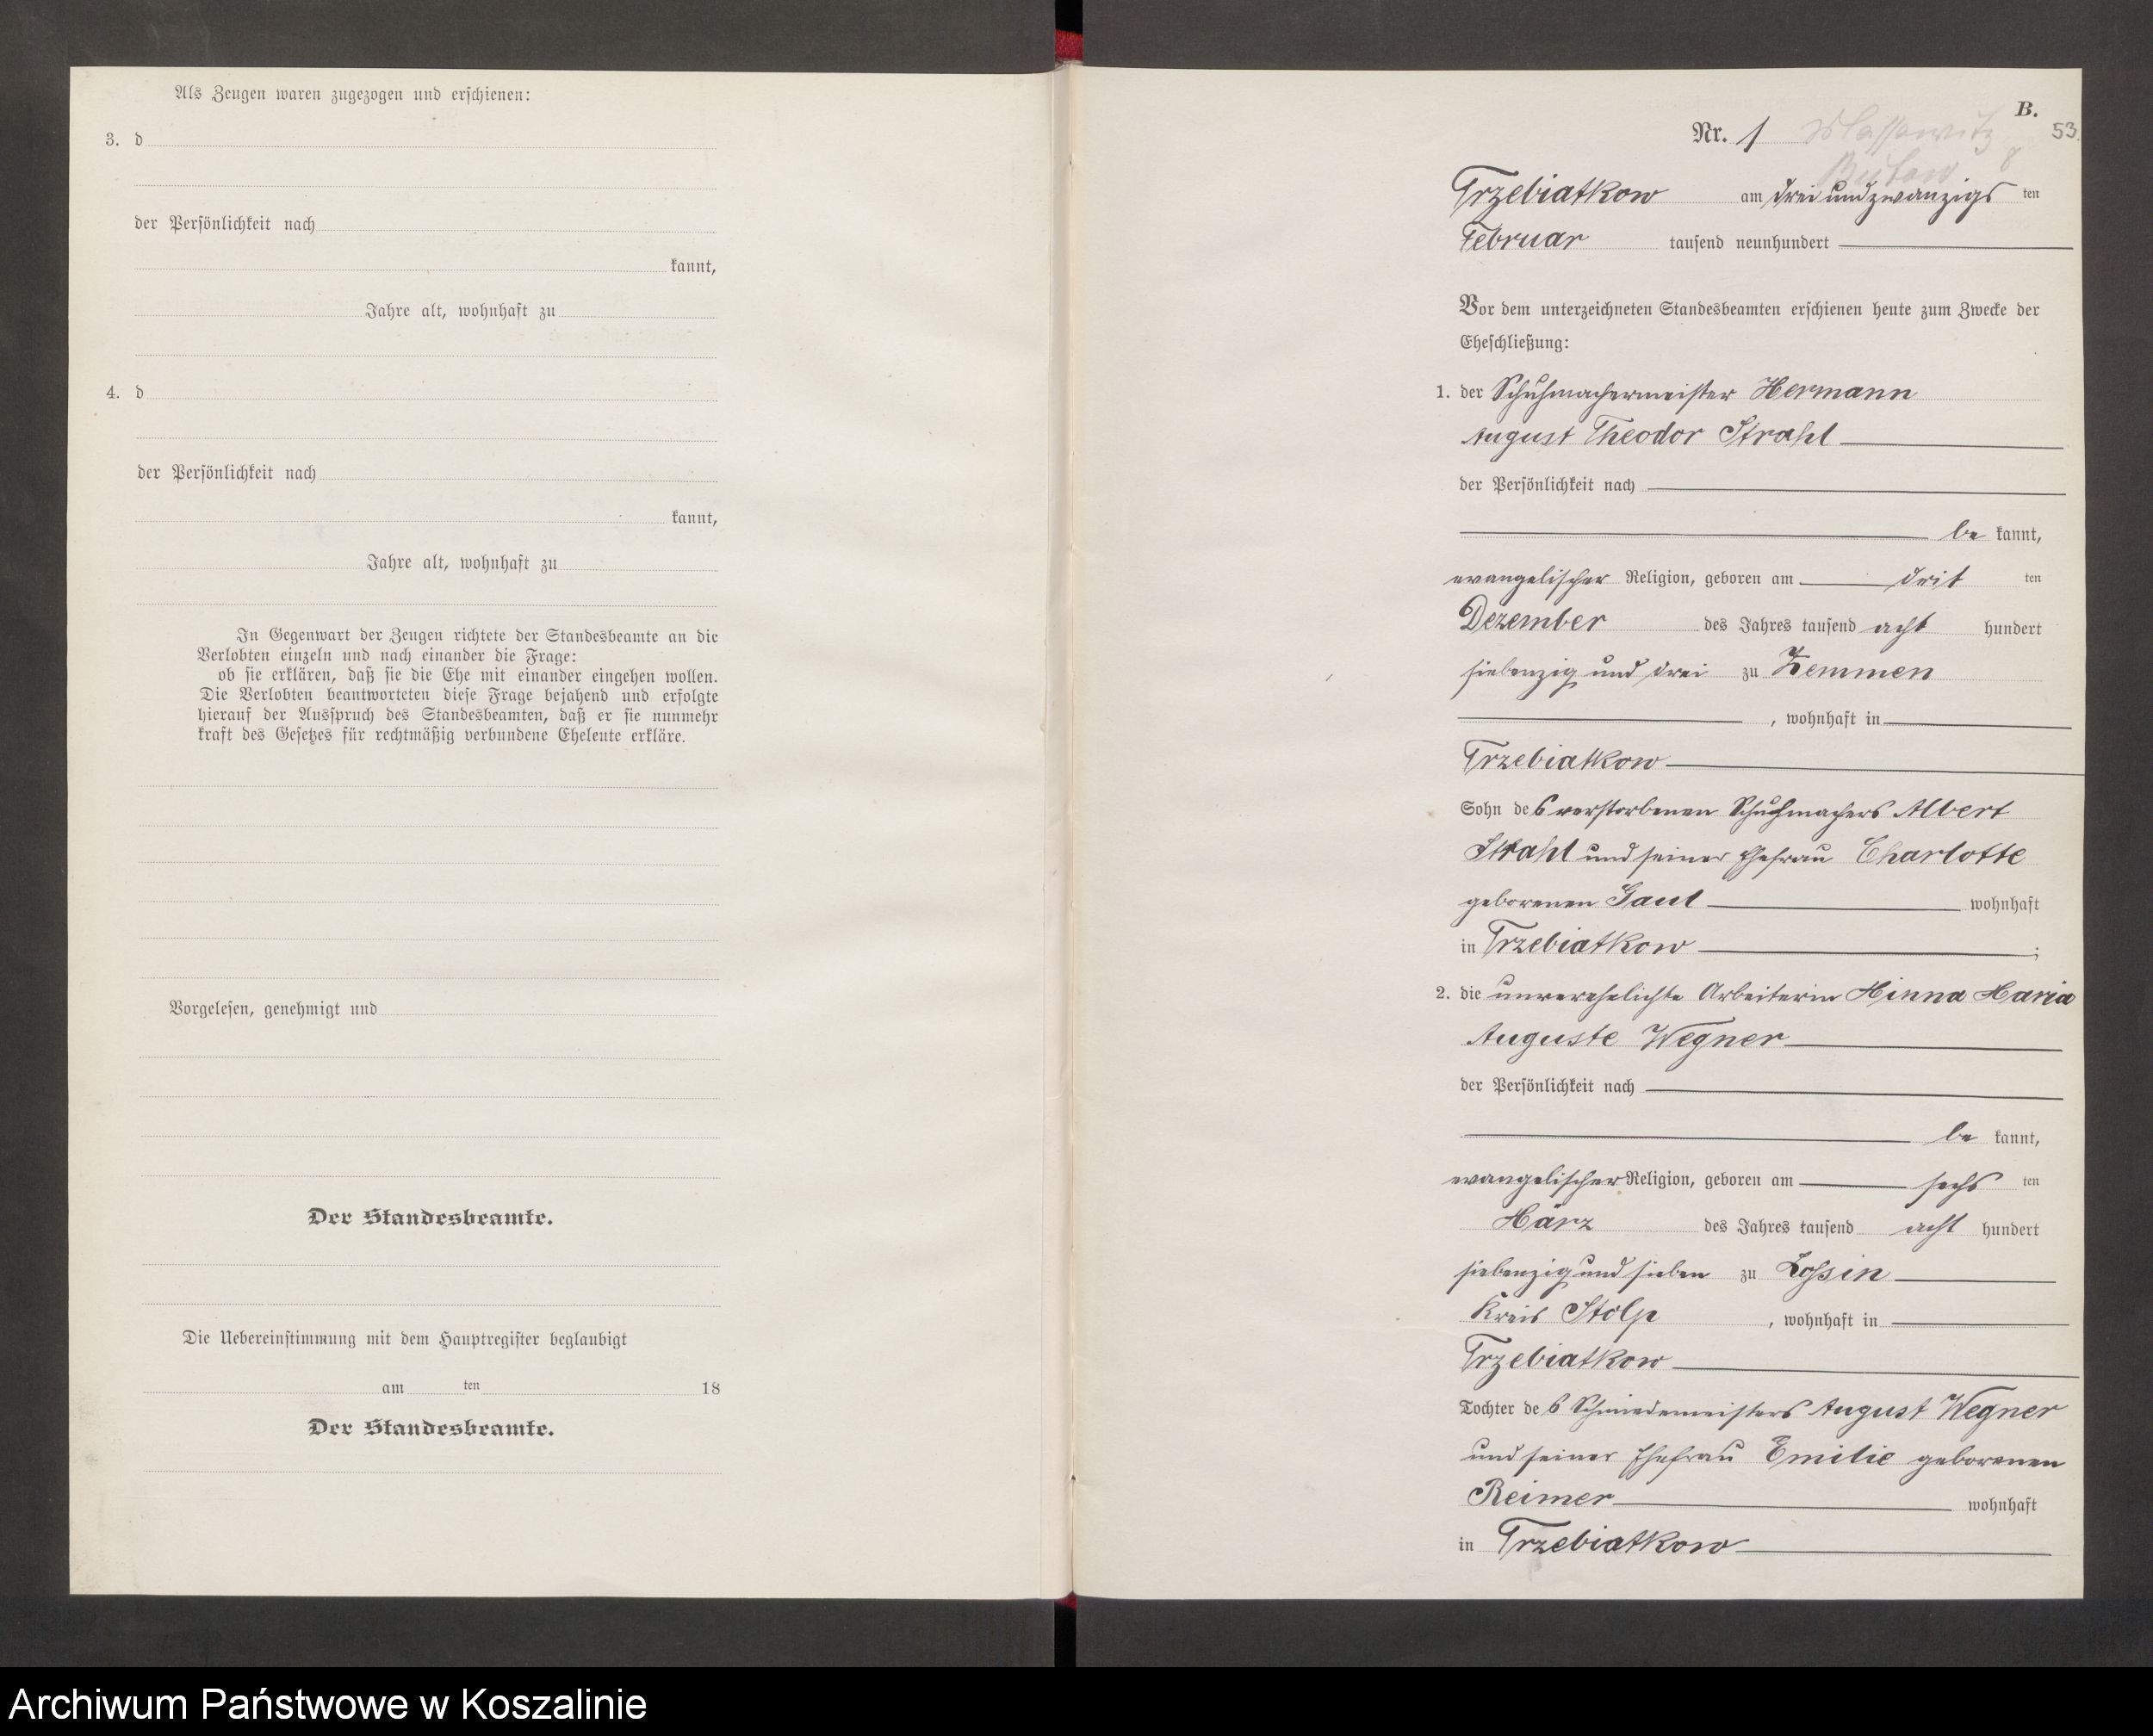 Als Zeugen waren zugezogen und erschienen:
3. d
der Persönlichkeit nach
kannt,
Jahre alt, wohnhaft zu
4. d
der Persönlichkeit nach
kannt,
Jahre alt, wohnhaft zu
In Gegenwart der Zeugen richtete der Standesbeamte an die
Verlobten einzeln und nach einander die Frage:
ob sie erklären, daß sie die Ehe mit einander eingehen wollen.
Die Verlobten beantworteten diese Frage bejahend und erfolgte
hierauf der Ausspruch des Standesbeamten, daß er sie nunmehr
kraft des Gesetzes für rechtmäßig verbundene Eheleute erkläre.
Vorgelesen, genehmigt und
Der Standesbeamte.
Die Uebereinstimmung mit dem Hauptregister beglaubigt
am ten 18
Der Standesbeamte.
B.
Nr. 1 53.
Bütow
Trzebiatkow am dreiundzwanzigs ten
Februar tausend neunhundert
Vor dem unterzeichneten Standesbeamten erschienen heute zum Zwecke der
Eheschließung:
1. der Schuhmachermeister Hermann
August Theodor Strahl
der Persönlichkeit nach
be kannt,
evangelischer Religion, geboren am drit ten
Dezember des Jahres tausend acht hundert
siebenzig und drei zu Zemmen
, wohnhaft in
Trzebiatkow
Sohn des verstorbenen Schuhmachers Albert
Strahl und seiner Ehefrau Charlotte
geborenen Gaul wohnhaft
in Trzebiatkow ;
2. die unverehelichte Arbeiterin Minna Maria
Auguste Wegner
der Persönlichkeit nach
be kannt,
evangelischer Religion, geboren am sechs ten
März des Jahres tausend acht hundert
siebenzig und sieben zu Lossin
Kreis Stolp , wohnhaft in
Trzebiatkow
Tochter des Schmiedemeisters August Wegner
und seiner Ehefrau Emilie geborenen
Reimer wohnhaft
in Trzebiatkow
Archiwum Państwowe w Koszalinie